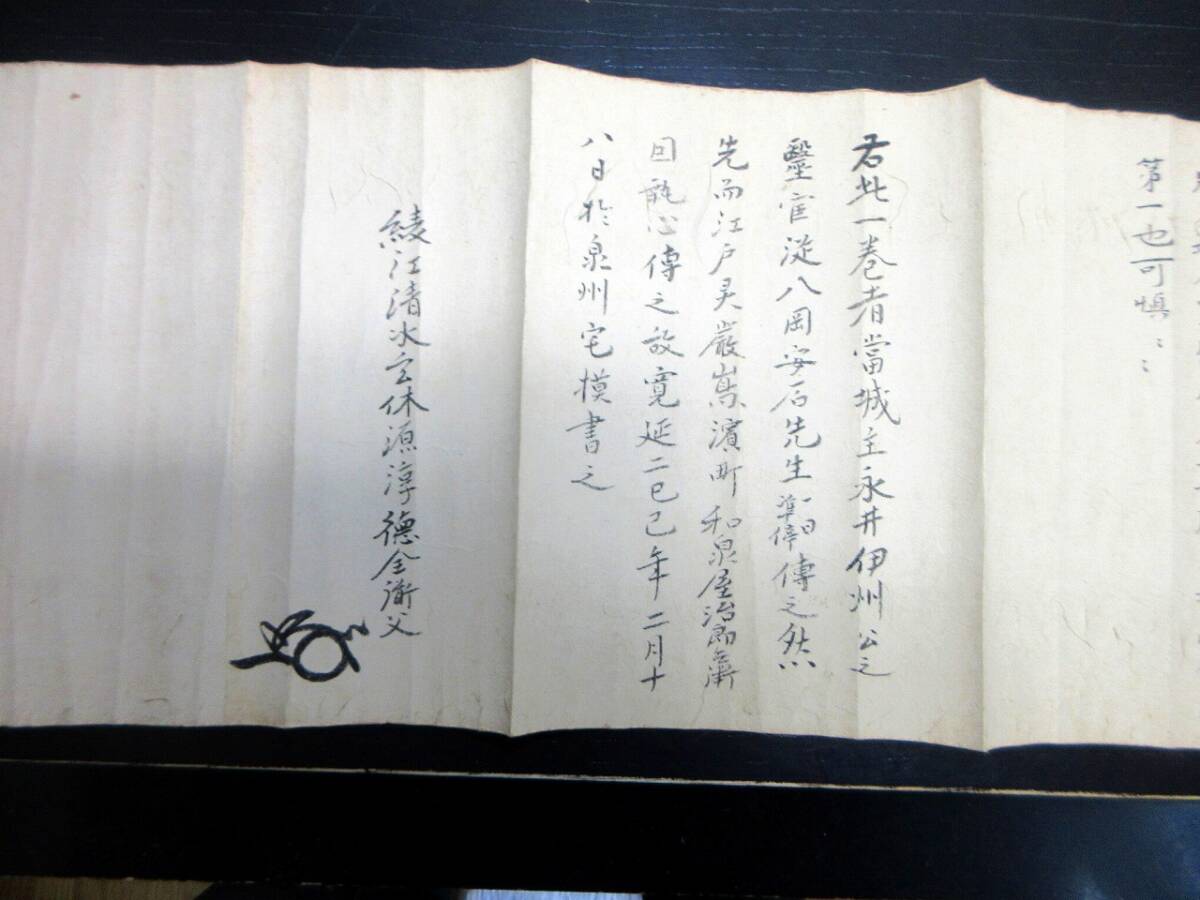 第一也可慎〻〻
右此一巻者當城主永井伊州公之
醫官從八岡安石先生傳之然
先而江戸灵巌嶌濱町和泉屋治郎兵衛
回 心傳之故寛延二己巳年二月十
八日於泉州宅摸書之
綾江清水玄休源淳德全衛父